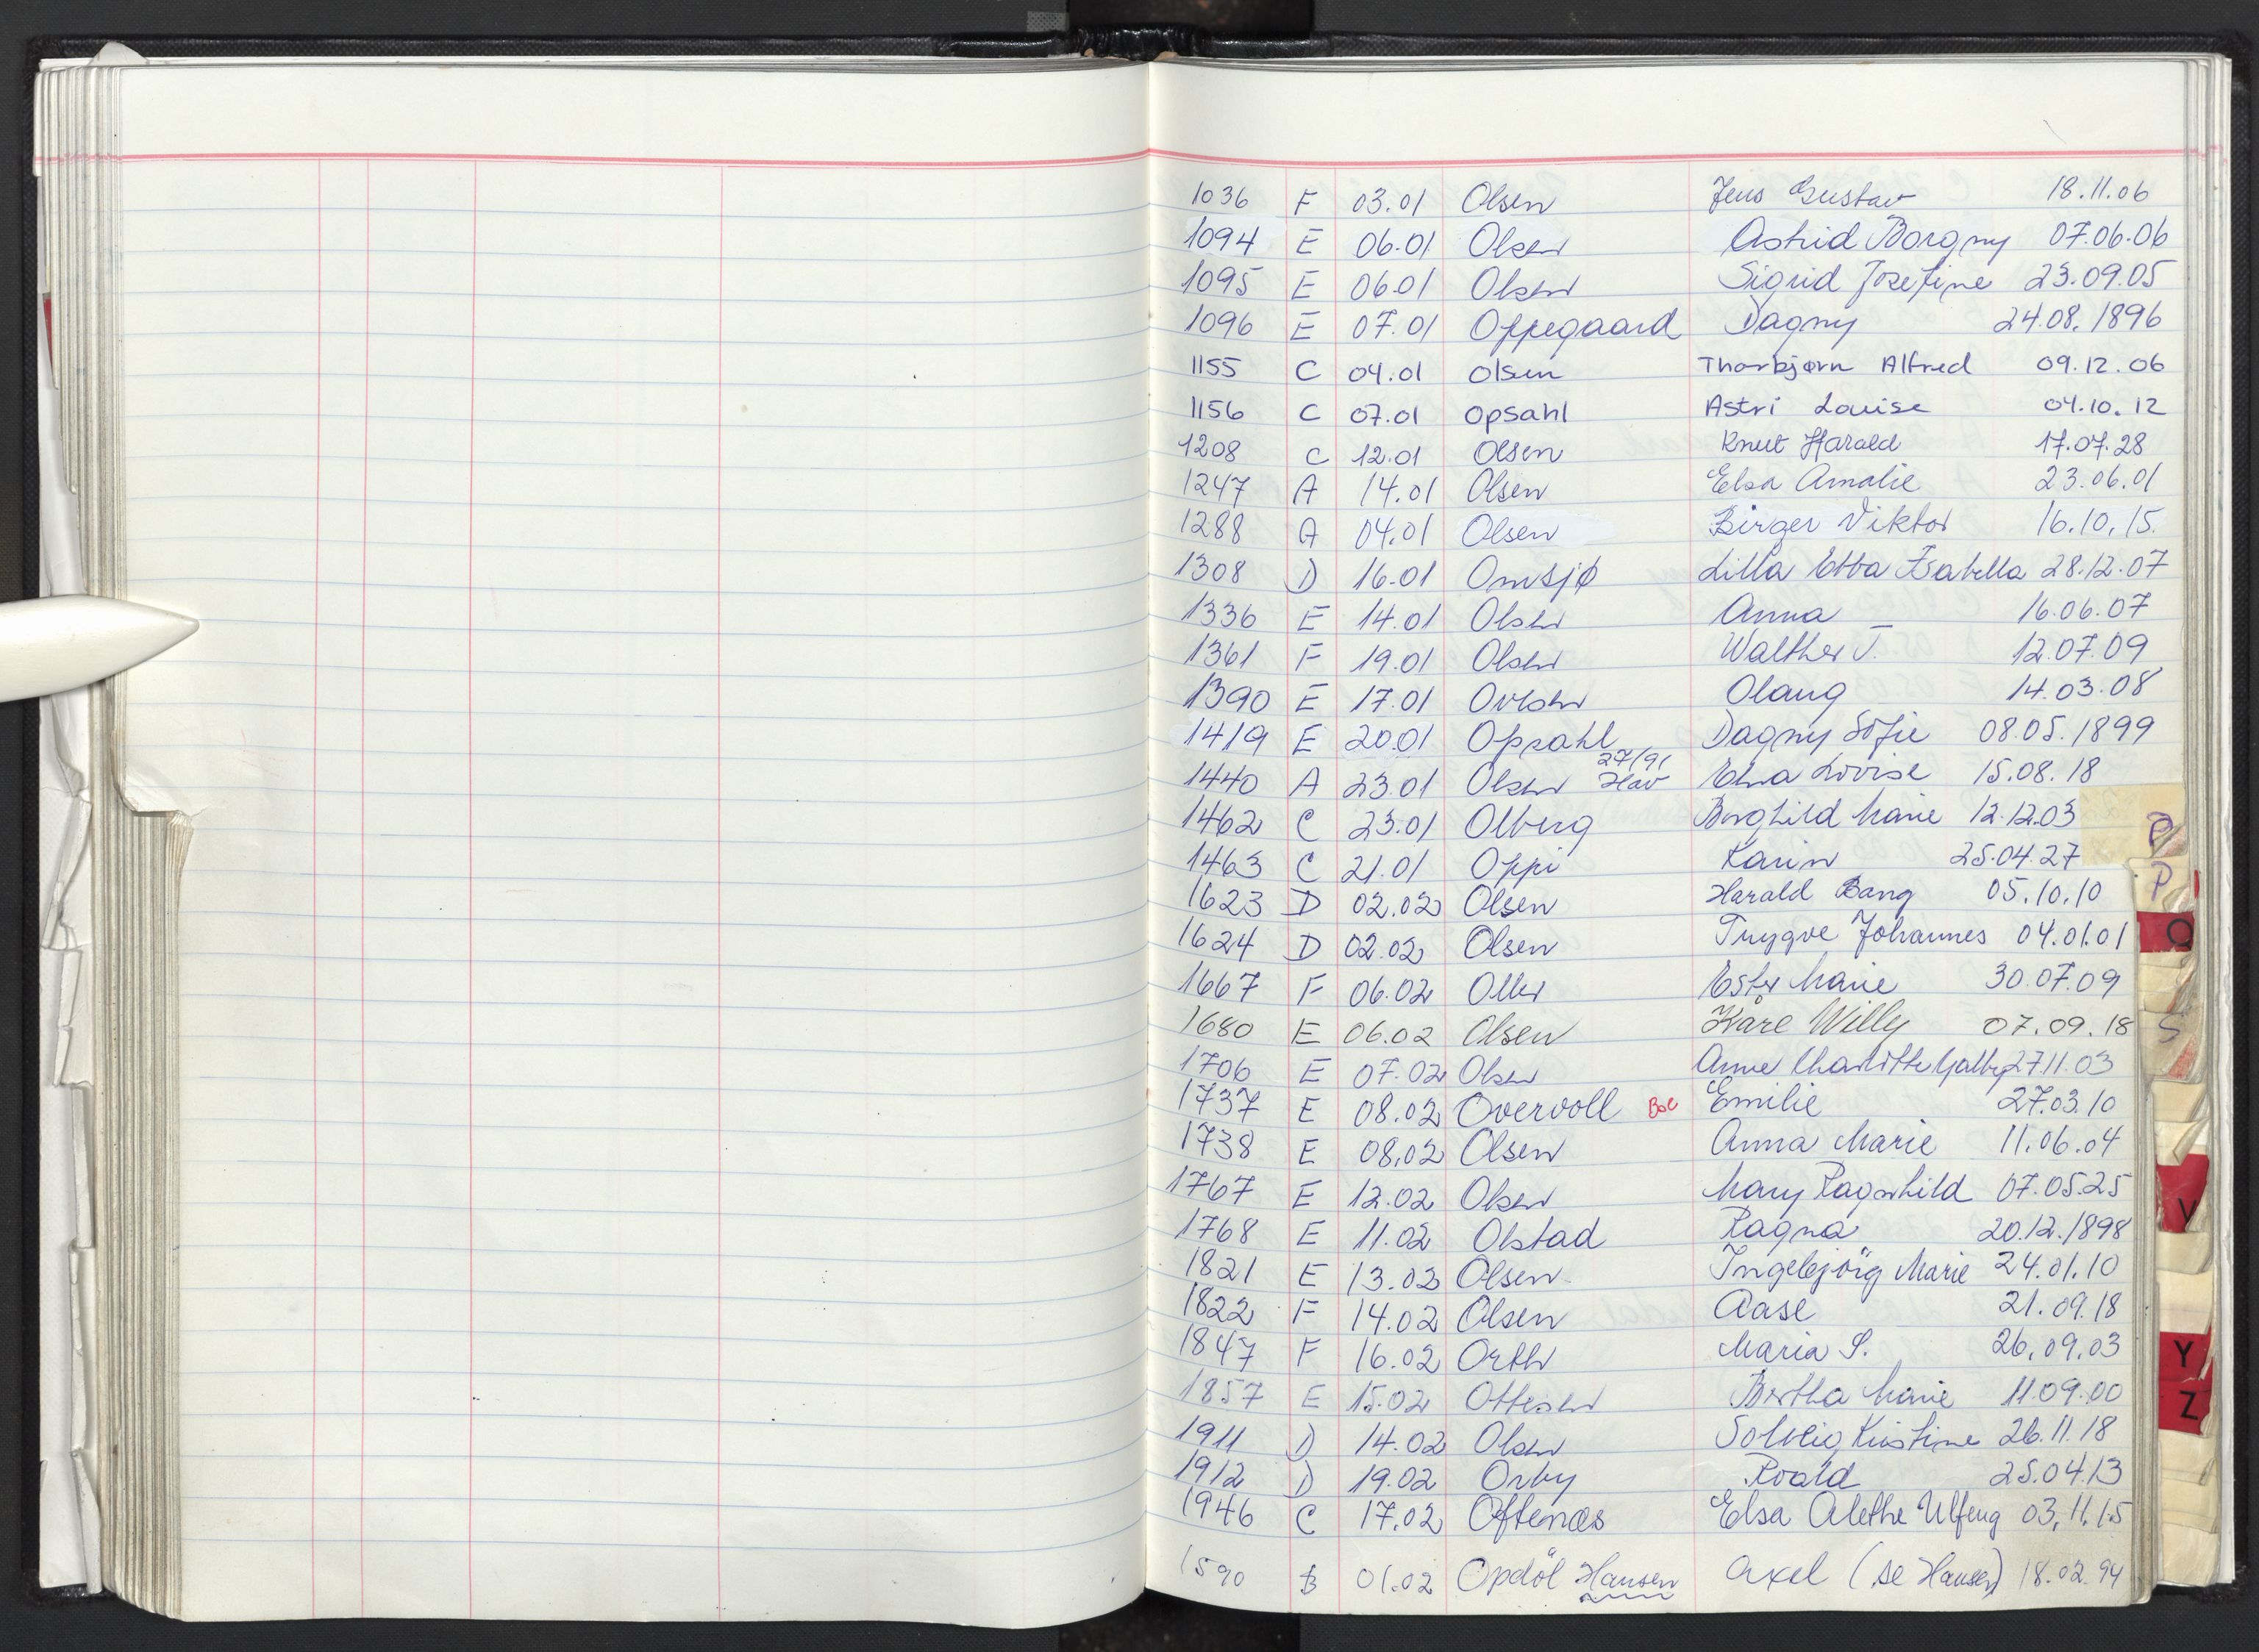 1036 F 03.01 Olsen Jens Gustav 18.11.06
1094 E 06.01 Olsen Astrid Borgny 07.06.06
1095 E 06.01 Olsen Sigrid Josefine 23.09.05
1096 E 07.01 Oppegaard Dagny 24.08.1896
1155 C 04.01 Olsen Thorbjørn Alfred 09.12.06
1156 C 07.01 Opsahl Astri Louise 04.10.12
1208 C 12.01 Olsen Knut Harald 17.07.28
1247 A 14.01 Olsen Elsa Amalie 23.06.01
1288 A 04.01 Olsen Birger Viktor 16.10.15.
1308 D 16.01 Omsjø Lilla Ebba Isabella 28.12.07
1336 E 14.01 Olsen Anna 16.06.07
1361 F 19.01 Olsen Walther J. 12.07.09
1390 E 17.01 Ovesen Olaug 14.03.08
1419 E 20.01 Opsahl Dagny Sofie 08.05.1899
27/91
1440 A 23.01 Olsen Hav Elna Lovise 15.08.18
1462 C 23.01 Olberg Borghild Marie 12.12.03
P
1463 C 21.01 Oppi Karin 25.04.27
P
1623 D 02.02 Olsen Harald Bang 05.10.10
1624 D 02.02 Olsen Trygve Johannes 04.01.01
Q
1667 F 06.02 Oller Ester Marie 30.07.09
1680 E 06.02 Olsen Kåre Willy 07.09.18
S
1706 E 07.02 Olsen Anne Charlotte 27.11.03
1737 E 08.02 Overvoll Bol Emilie 27.03.10
1738 E 08.02 Olsen Anna Marie 11.06.04
1767 E 12.02 Olsen Mary Ragnhild 07.05.25
V
1768 E 11.02 Olstad Ragna 20.12.1898
1821 E 13.02 Olsen Ingebjörg Marie 24.01.10
1822 F 14.02 Olsen Aase 21.09.18
1847 F 16.02 Orth Maria S. 26.09.03
Y
1857 E 15.02 Ottesen Bertha Marie 11.09.00
Z
1911 D 14.02 Olsen Solveig Kristine 26.11.18
1912 D 19.02 Orby Roald 25.04.13
1946 C 17.02 Oftenæs Elsa Alethe Ulfeng 03.11.15
1590 B 01.02 Opdöl Hansen Axel (se Hansen) 18.02.94